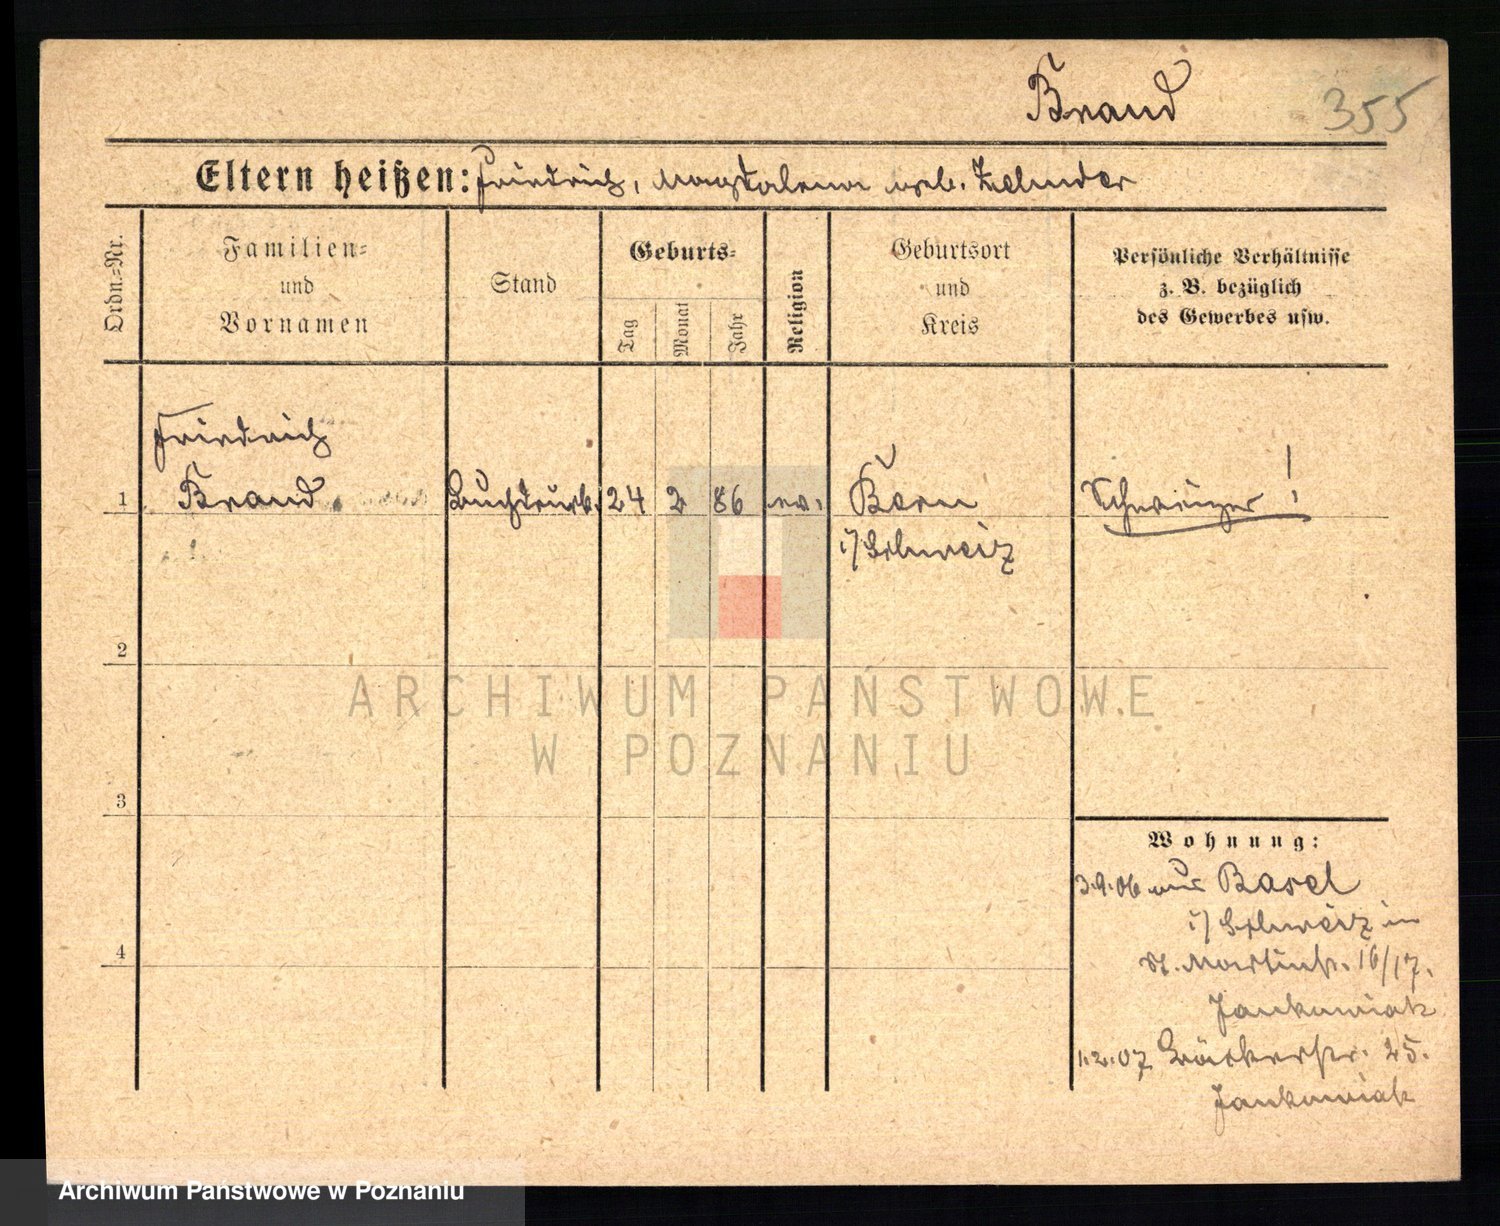 Brand
355
Eltern heißen: Friedrich, Magdalena geb. Zehnder
Ordn.=Nr.
Familien=
und
Vornamen
Stand
Geburts=
Tag
Monat
Jahr
Religion
Geburtsort
und
Kreis
Persönliche Verhältnisse
z. B. bezüglich
des Gewerbes usw.
Friedrich
1 Brand 24 2 86 ev. Bern Schweizer!
i/ Schweiz
2
ARCHIWUM PAŃSTWOWE
W POZNANIU
3
Wohnung:
3.9.06 aus Basel
i/ Schweiz in
4
St. Martinstr. 16/17.
Jankowiak
1.2.07 Bäckerstr. 25.
Jankowiak
Archiwum Państwowe w Poznaniu